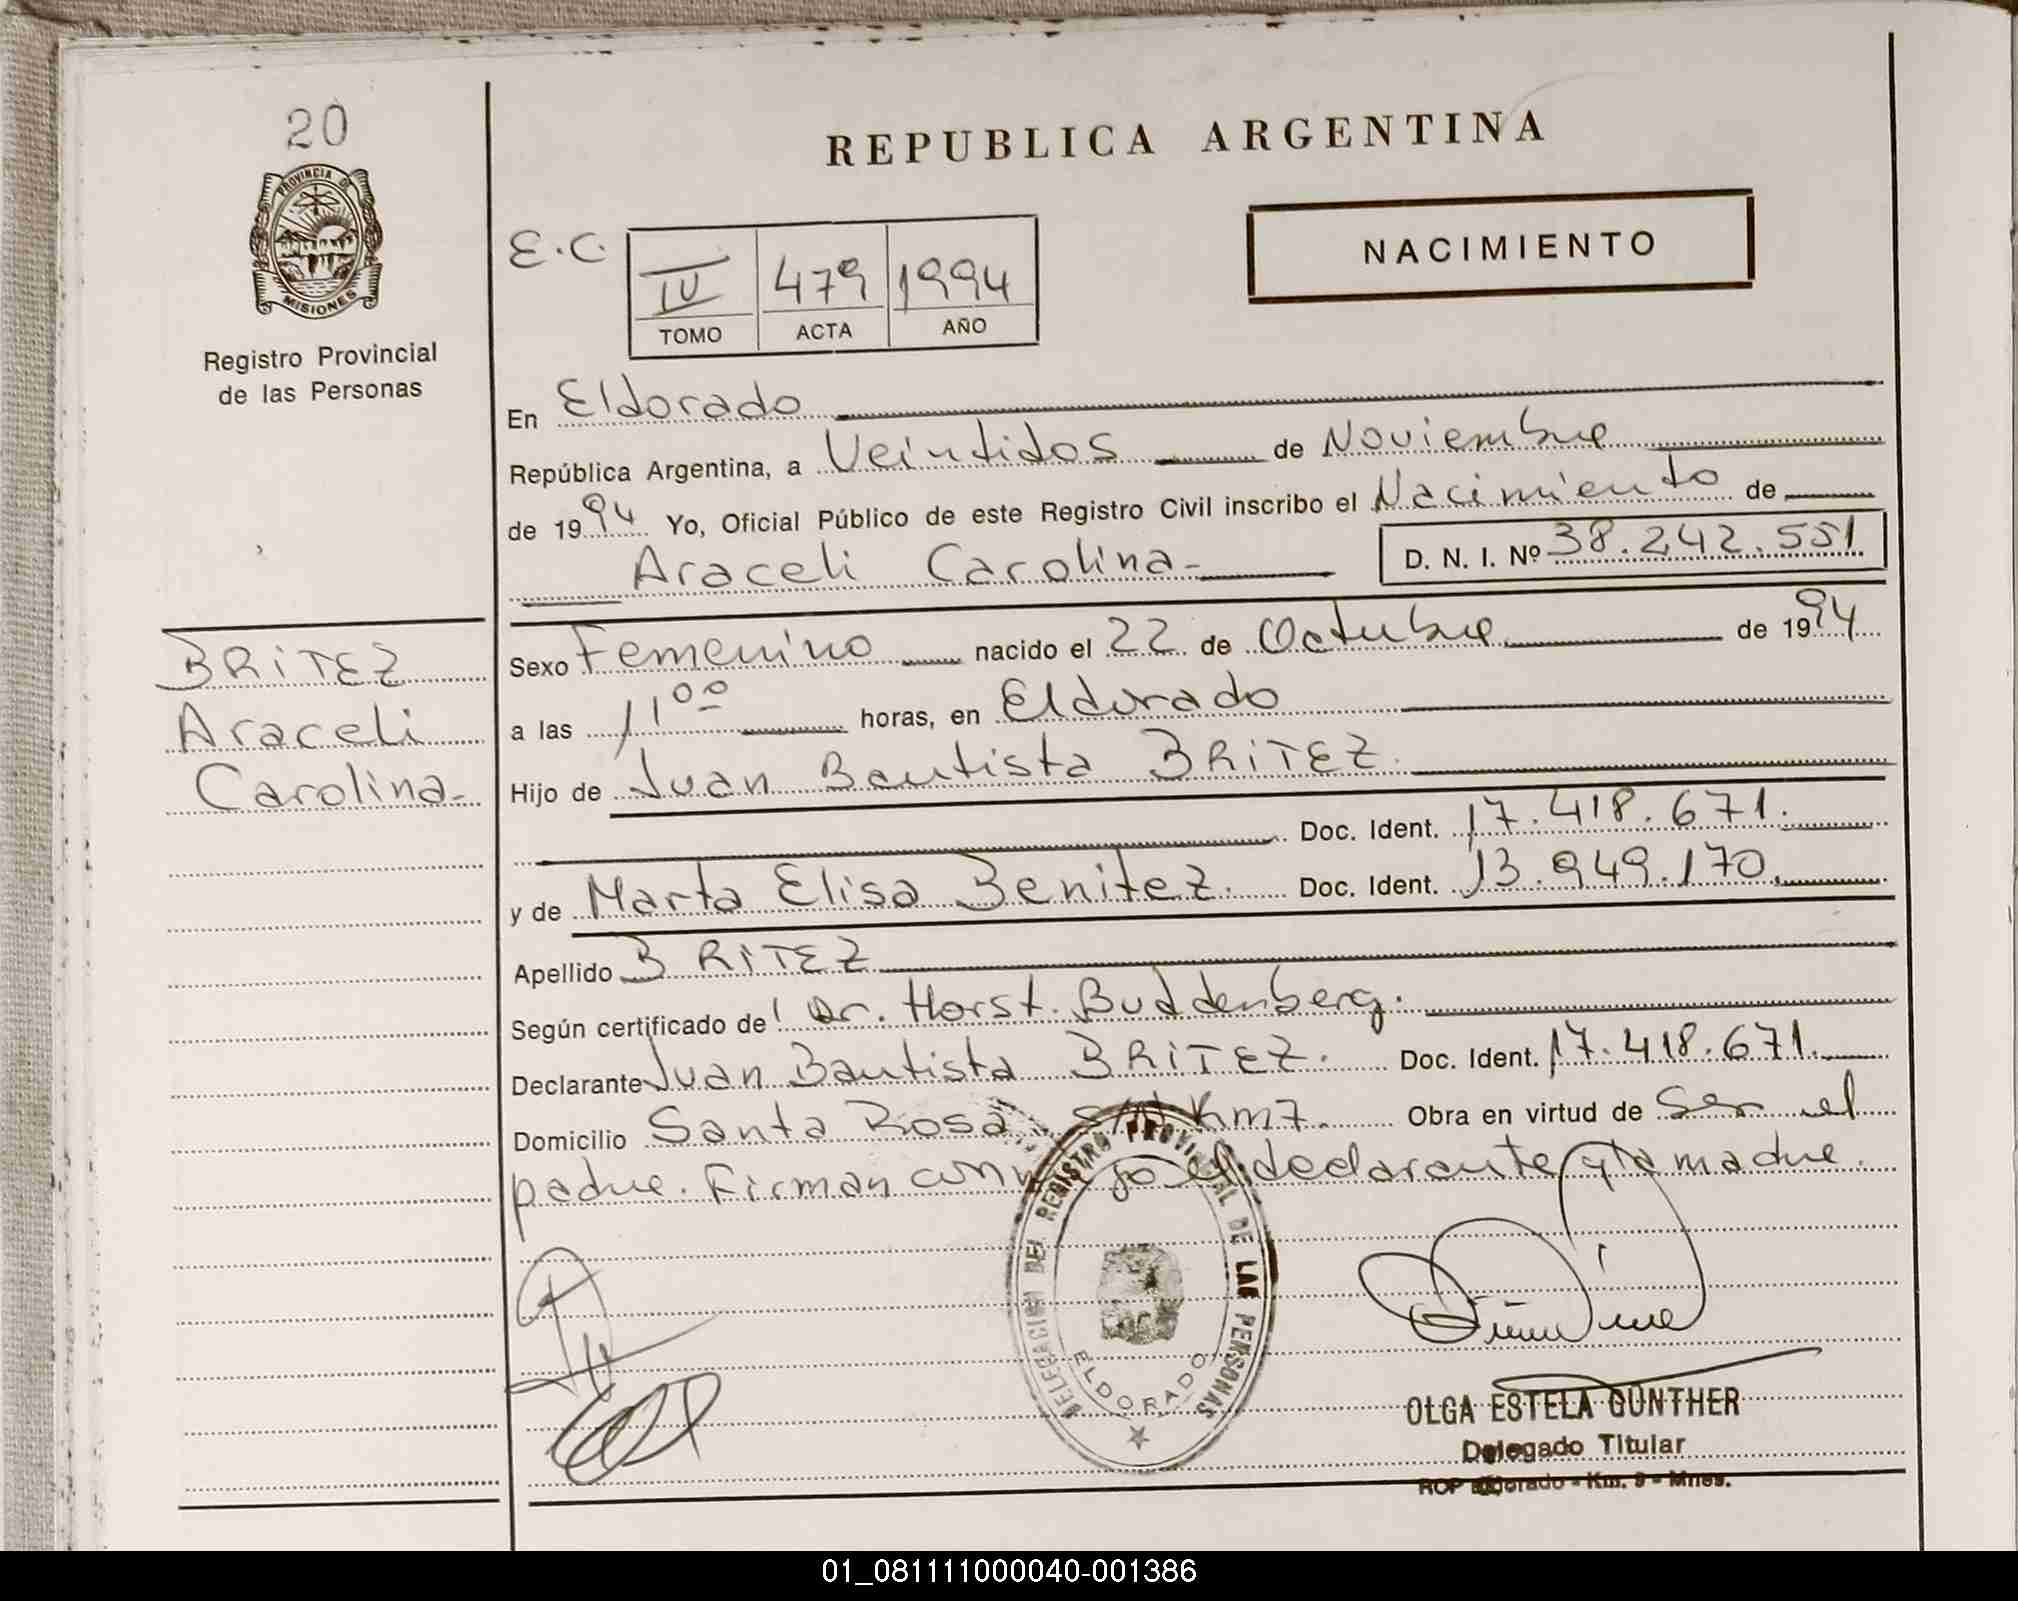 20
PROVINCIA DE
MISIONES
Registro Provincial
de las Personas
REPUBLICA ARGENTINA
NACIMIENTO
E.C.
IV 479 1994
TOMO ACTA AÑO
En Eldorado
República Argentina, a Veintidos de Noviembre
de 1994 Yo, Oficial Público de este Registro Civil inscribo el Nacimiento de
Araceli Carolina- D. N. I. Nº 38.242.551
BRITEZ
Araceli
Carolina-
Sexo Femenino nacido el 22 de Octubre de 1994
a las 11 00 horas, en Eldorado
Hijo de Juan Bautista BRITEZ.
Doc. Ident. 17.418.671.
y de Marta Elisa Benitez. Doc. Ident. 13.949.170.
Apellido BRITEZ
Según certificado de Dr. Horst. Buddenberg.
Declarante Juan Bautista BRITEZ. Doc. Ident. 17.418.671.
Domicilio Santa Rosa S/N Km 7. Obra en virtud de Ser el
padre. Firman conmigo el declarante y la madre.
DELEGACION DEL REGISTRO PROVINCIAL DE LAS PERSONAS
ELDORADO
OLGA ESTELA GUNTHER
Delegado Titular
RCP Eldorado - Km. 9 - Mnes.
01_081111000040-001386